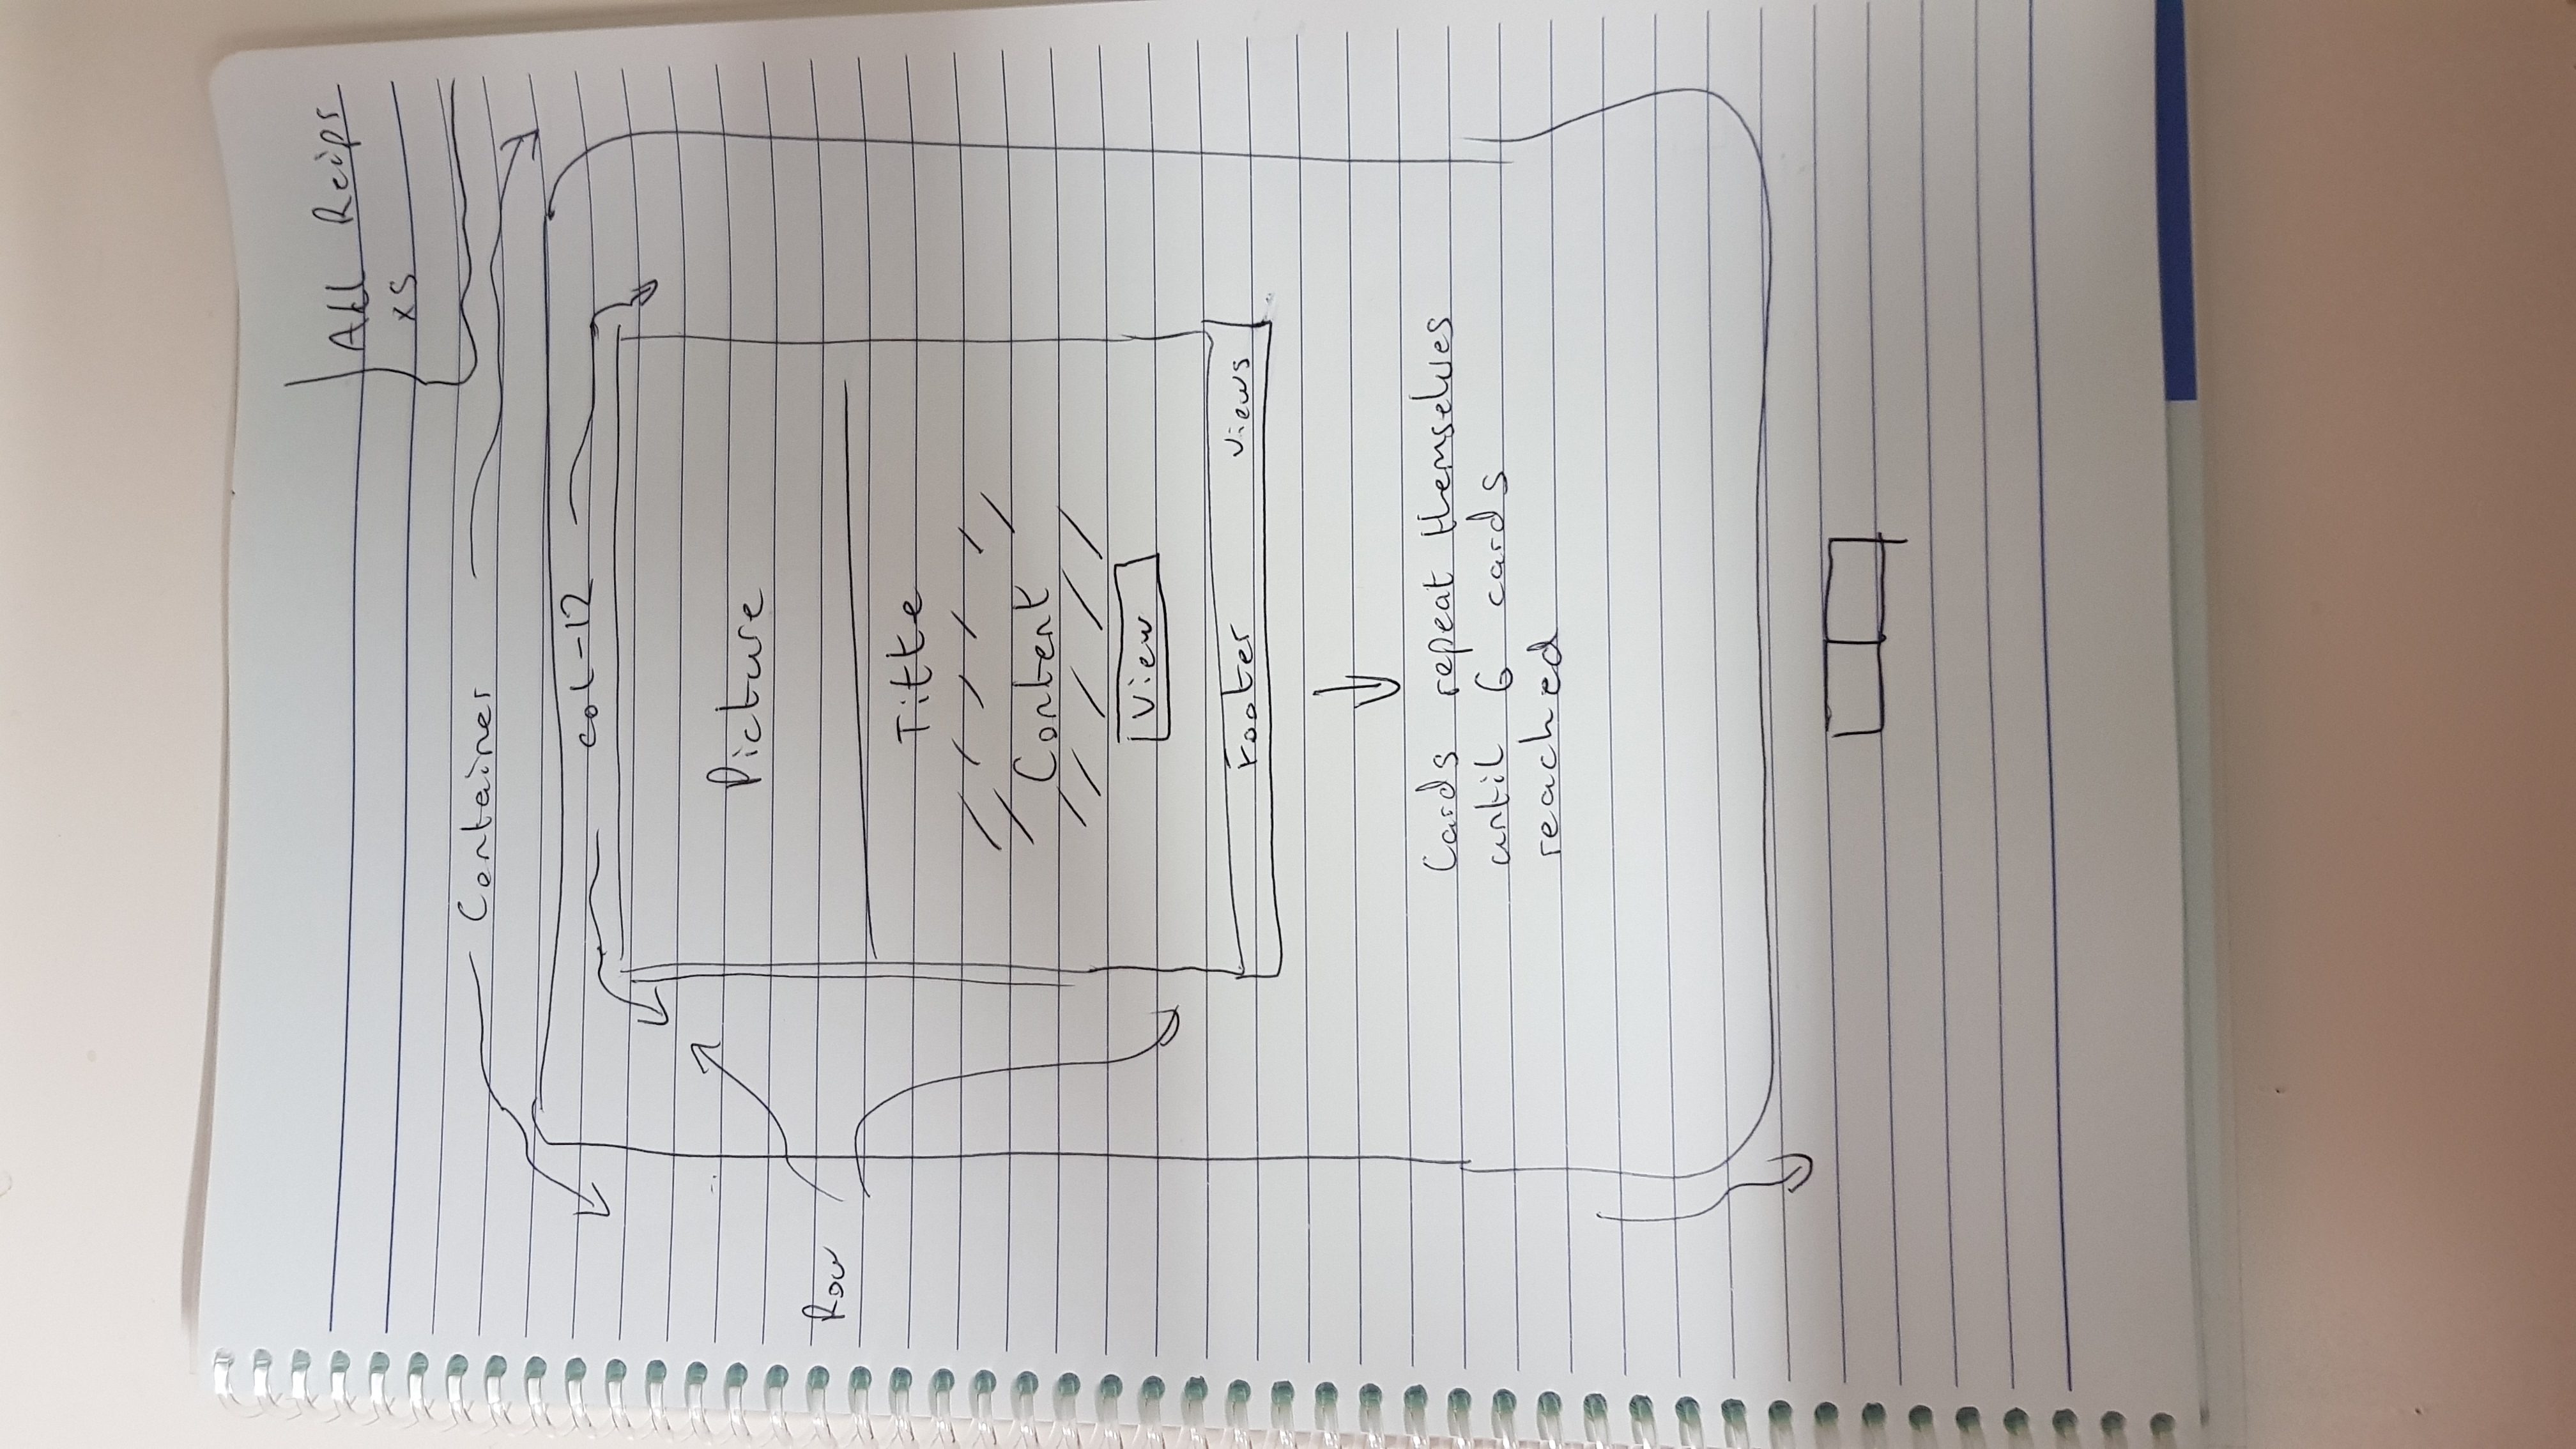 All Reips
xs
Container
col-12
Picture
Row
Title
Content
View
Footer Views
Cards repeat themselves
until 6 cards
reached